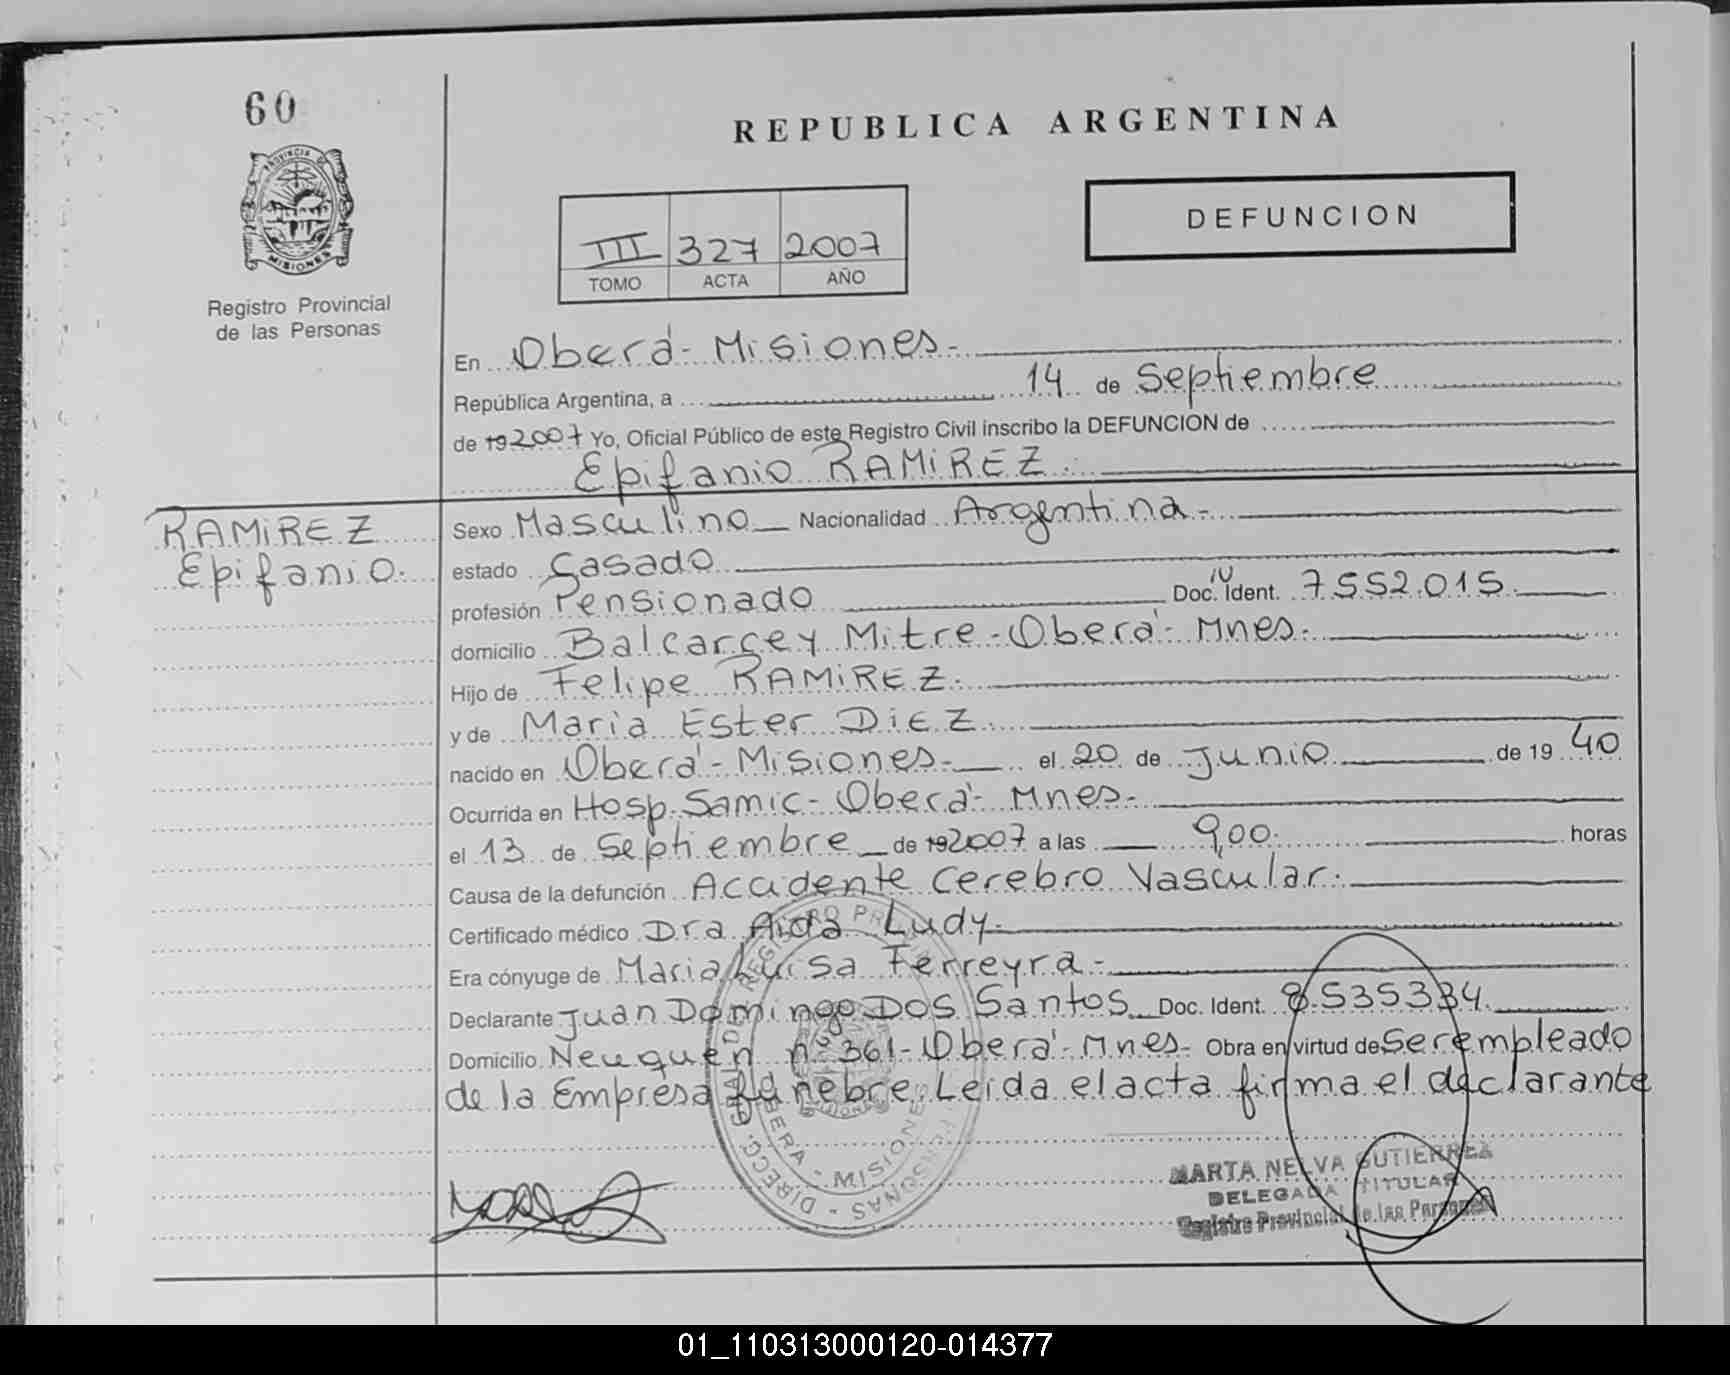 60
REPUBLICA ARGENTINA
PROVINCIA DE
MISIONES
Registro Provincial
de las Personas
DEFUNCION
III 327 2007
TOMO ACTA AÑO
En Oberá - Misiones.-
República Argentina, a 14 de Septiembre
de 192007 Yo, Oficial Público de este Registro Civil inscribo la DEFUNCION de
Epifanio RAMIREZ.
RAMIREZ
Epifanio.
Sexo Masculino Nacionalidad Argentina.-
estado Casado
profesión Pensionado Doc. Ident. 7.552.015.
domicilio Balcarce y Mitre - Oberá - Mnes.
Hijo de Felipe RAMIREZ.
y de Maria Ester DIEZ.
nacido en Oberá - Misiones.- el 20 de Junio de 19 40
Ocurrida en Hosp. Samic - Oberá - Mnes.-
el 13 de Septiembre de 192007 a las 9,00. horas
Causa de la defunción Accidente Cerebro Vascular.
Certificado médico Dra Aida Ludy.
Era cónyuge de Maria Luisa Ferreyra.-
Declarante Juan Domingo DOS Santos Doc. Ident. 8.535334.
Domicilio Neuquén nº 361 - Oberá - Mnes.- Obra en virtud de Ser empleado
de la Empresa fúnebre. Leida el acta firma el declarante
MARTA NELVA GUTIERREZ
DELEGADA TITULAR
Registro Provincial de las Personas
01_110313000120-014377